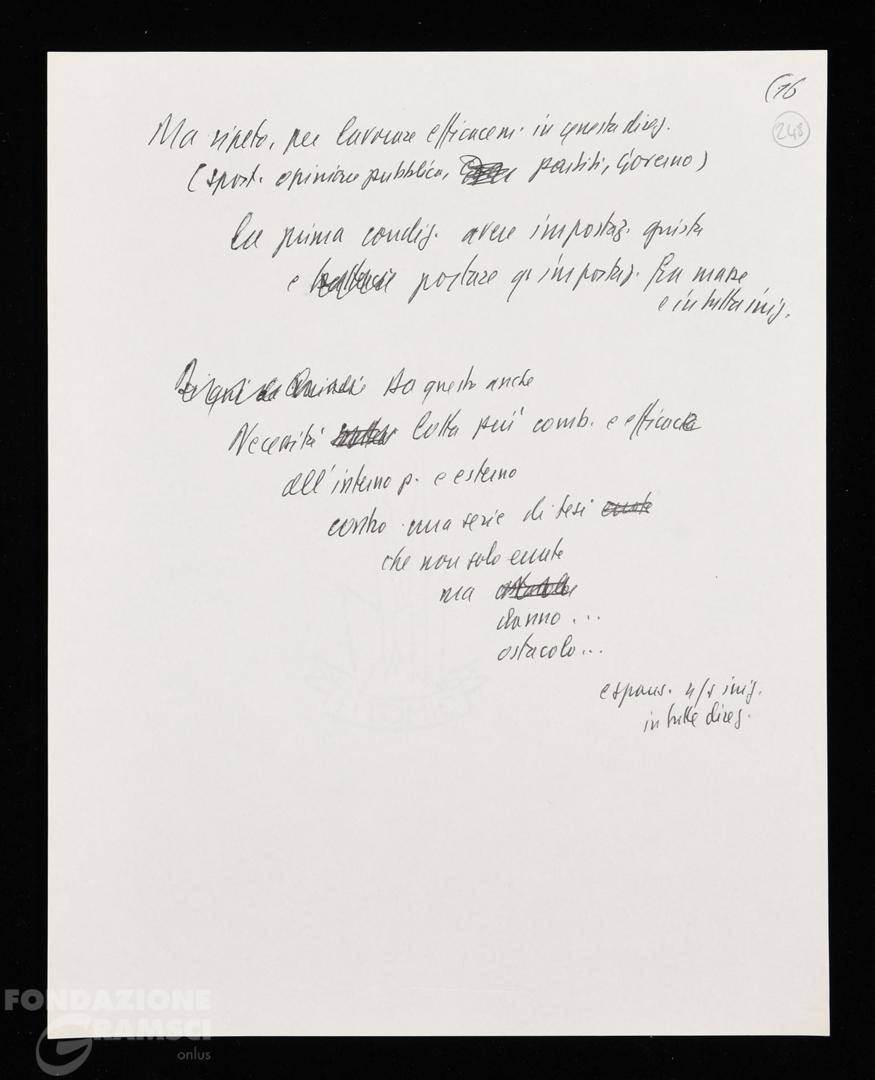 (16
248
Ma ripeto, per lavorare efficacem. in questa direz.
(spost. opinione pubblica, partiti, Governo)
la prima condiz. avere impostaz. giusta
e portare qs impostaz. fra masse
e in tutta iniz.
Da questo anche
Necessità lotta più comb. e efficace
all'interno p. e esterno
contro una serie di tesi errate
che non solo errate
ma
danno...
ostacolo...
espans. n/s iniz.
in tutte direz.
FONDAZIONE
GRAMSCI
onlus